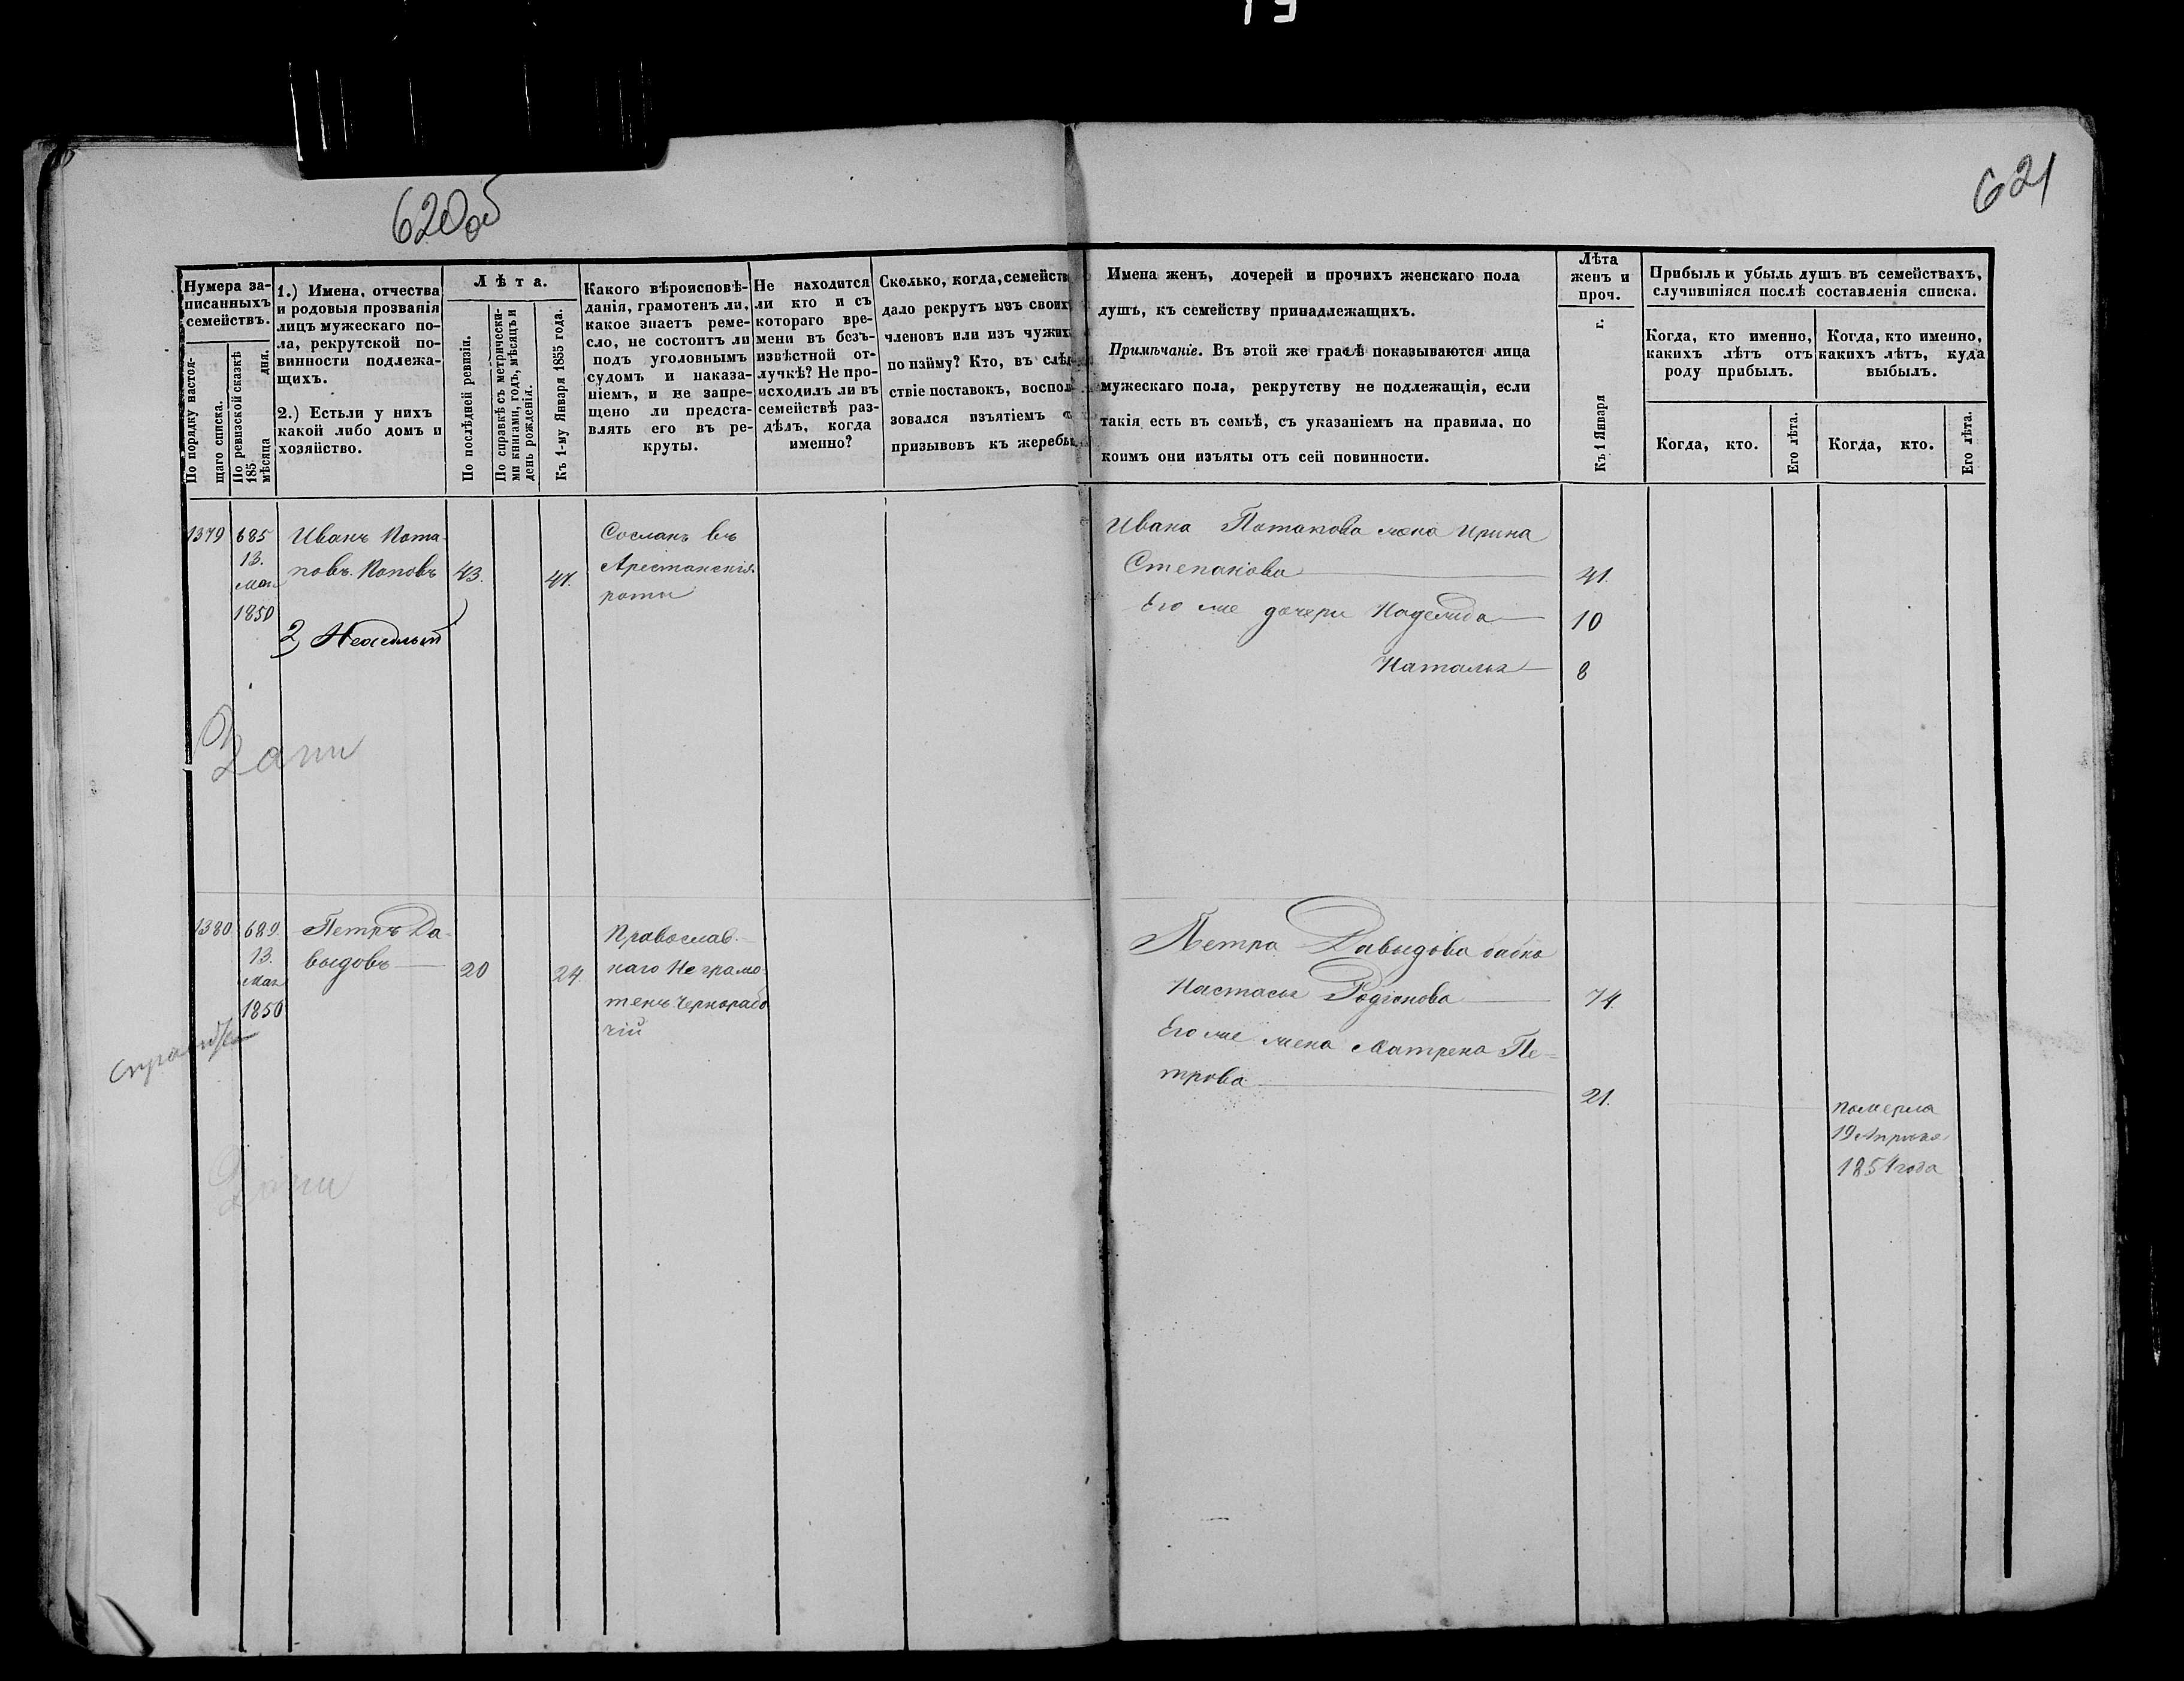 19
620об
621
Нумера за-
писанныхъ
семействъ.
По порядку настоя-
щаго списка.
По ревизской сказкѣ
185
мѣсяца дня.
1.) Имена, отчества
и родовыя прозванія
лицъ мужескаго по-
ла, рекрутской по-
винности подлежа-
щихъ.
2.) Естьли у нихъ
какой либо домъ и
хозяйство.
Лѣта.
По послѣдней ревизіи.
По справкѣ съ метрически-
ми книгами, годъ, мѣсяцъ и
день рожденія.
Къ 1-му Января 1855 года.
Какого вѣроисповѣ-
данія, грамотенъ ли,
какое знаетъ реме-
сло, не состоитъ ли
подъ уголовнымъ
судомъ и наказа-
ніемъ, и не запре-
щено ли предста-
влять его въ ре-
круты.
Не находится
ли кто и съ
котораго вре-
мени въ безъ-
извѣстной от-
лучкѣ? Не про-
исходилъ ли въ
семействѣ раз-
дѣлъ, когда
именно?
Сколько, когда, семейств
дало рекрутъ изъ своих
членовъ или изъ чужих
по найму? Кто, въ слѣд-
ствіе поставокъ, воспол
зовался изъятіемъ
призывовъ къ жеребь
Имена женъ, дочерей и прочихъ женскаго пола
душъ, къ семейству принадлежащихъ.
Примѣчаніе. Въ этой же графѣ показываются лица
мужескаго пола, рекрутству не подлежащія, если
такія есть въ семьѣ, съ указаніемъ на правила, по
коимъ они изъяты отъ сей повинности.
Лѣта
женъ и
проч.
Къ 1 Января г.
Прибыль и убыль душъ въ семействахъ,
случившіяся послѣ составленія списка.
Когда, кто именно,
какихъ лѣтъ отъ
роду прибылъ.
Когда, кто именно,
какихъ лѣтъ, куда
выбылъ.
Когда, кто.
Его лѣта.
Когда, кто.
Его лѣта.
1379
685
13.
Мая
1850
Иванъ Пота
повъ Поповъ
43.
47.
Сосланъ въ
Арестанскія
роты
Ивана Потапова жена Ирина
Степанова
41.
Его же дочери Надежда
10
Наталья
8
1380
689.
13.
Мая
1850
Петръ Да-
выдовъ
20
24.
Православ-
наго Неграмо-
тенъ Чернорабо
чій
Петра Давыдова бабка
Настасья Родіонова
74.
Его же жена Матрена Пе-
трова
21.
померла
19 Апрѣля
1854 года